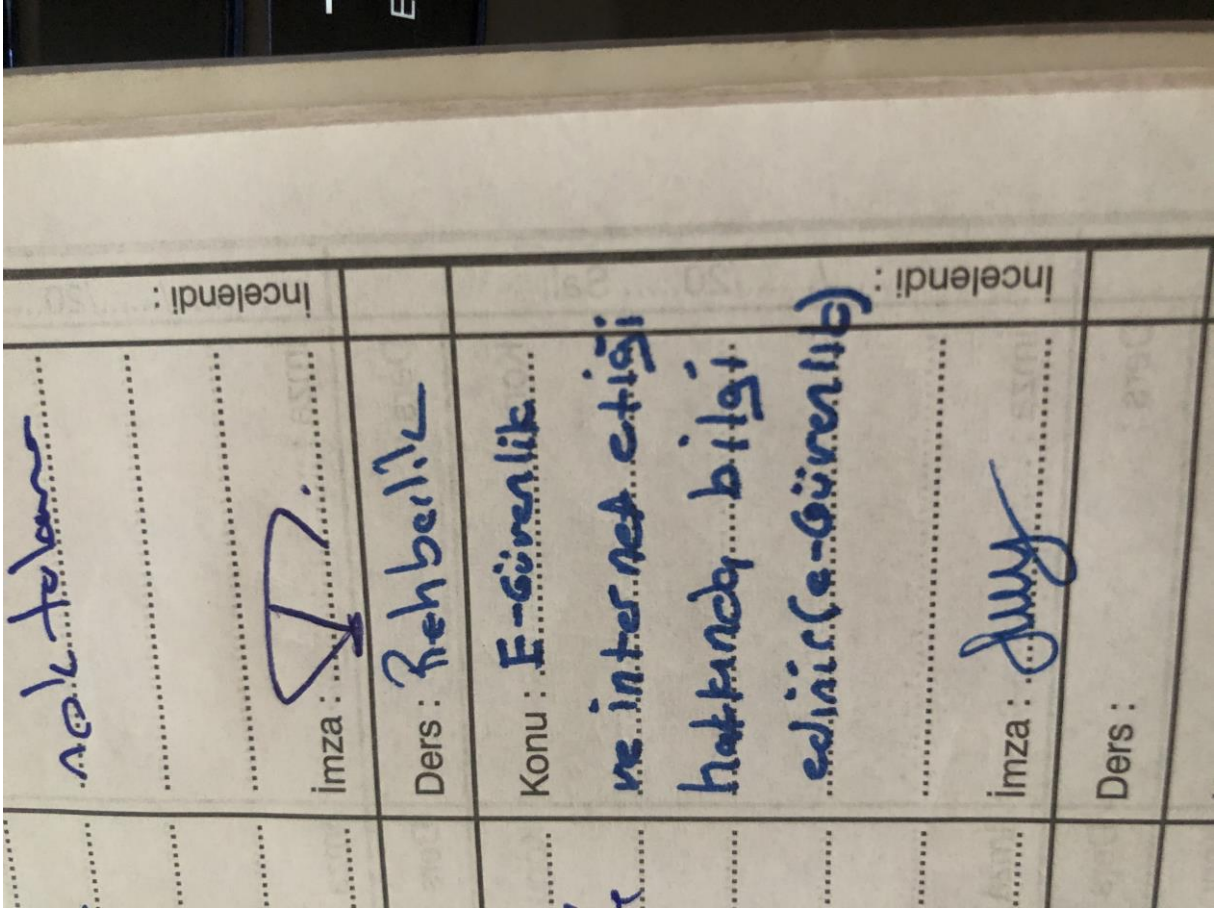 noktalama
İmza :
İncelendi :
Ders : Rehberlik
Konu : E-Güvenlik
ve internet etiği
hakkında bilgi
edinir(e-Güvenlik)
İmza :
İncelendi :
Ders :